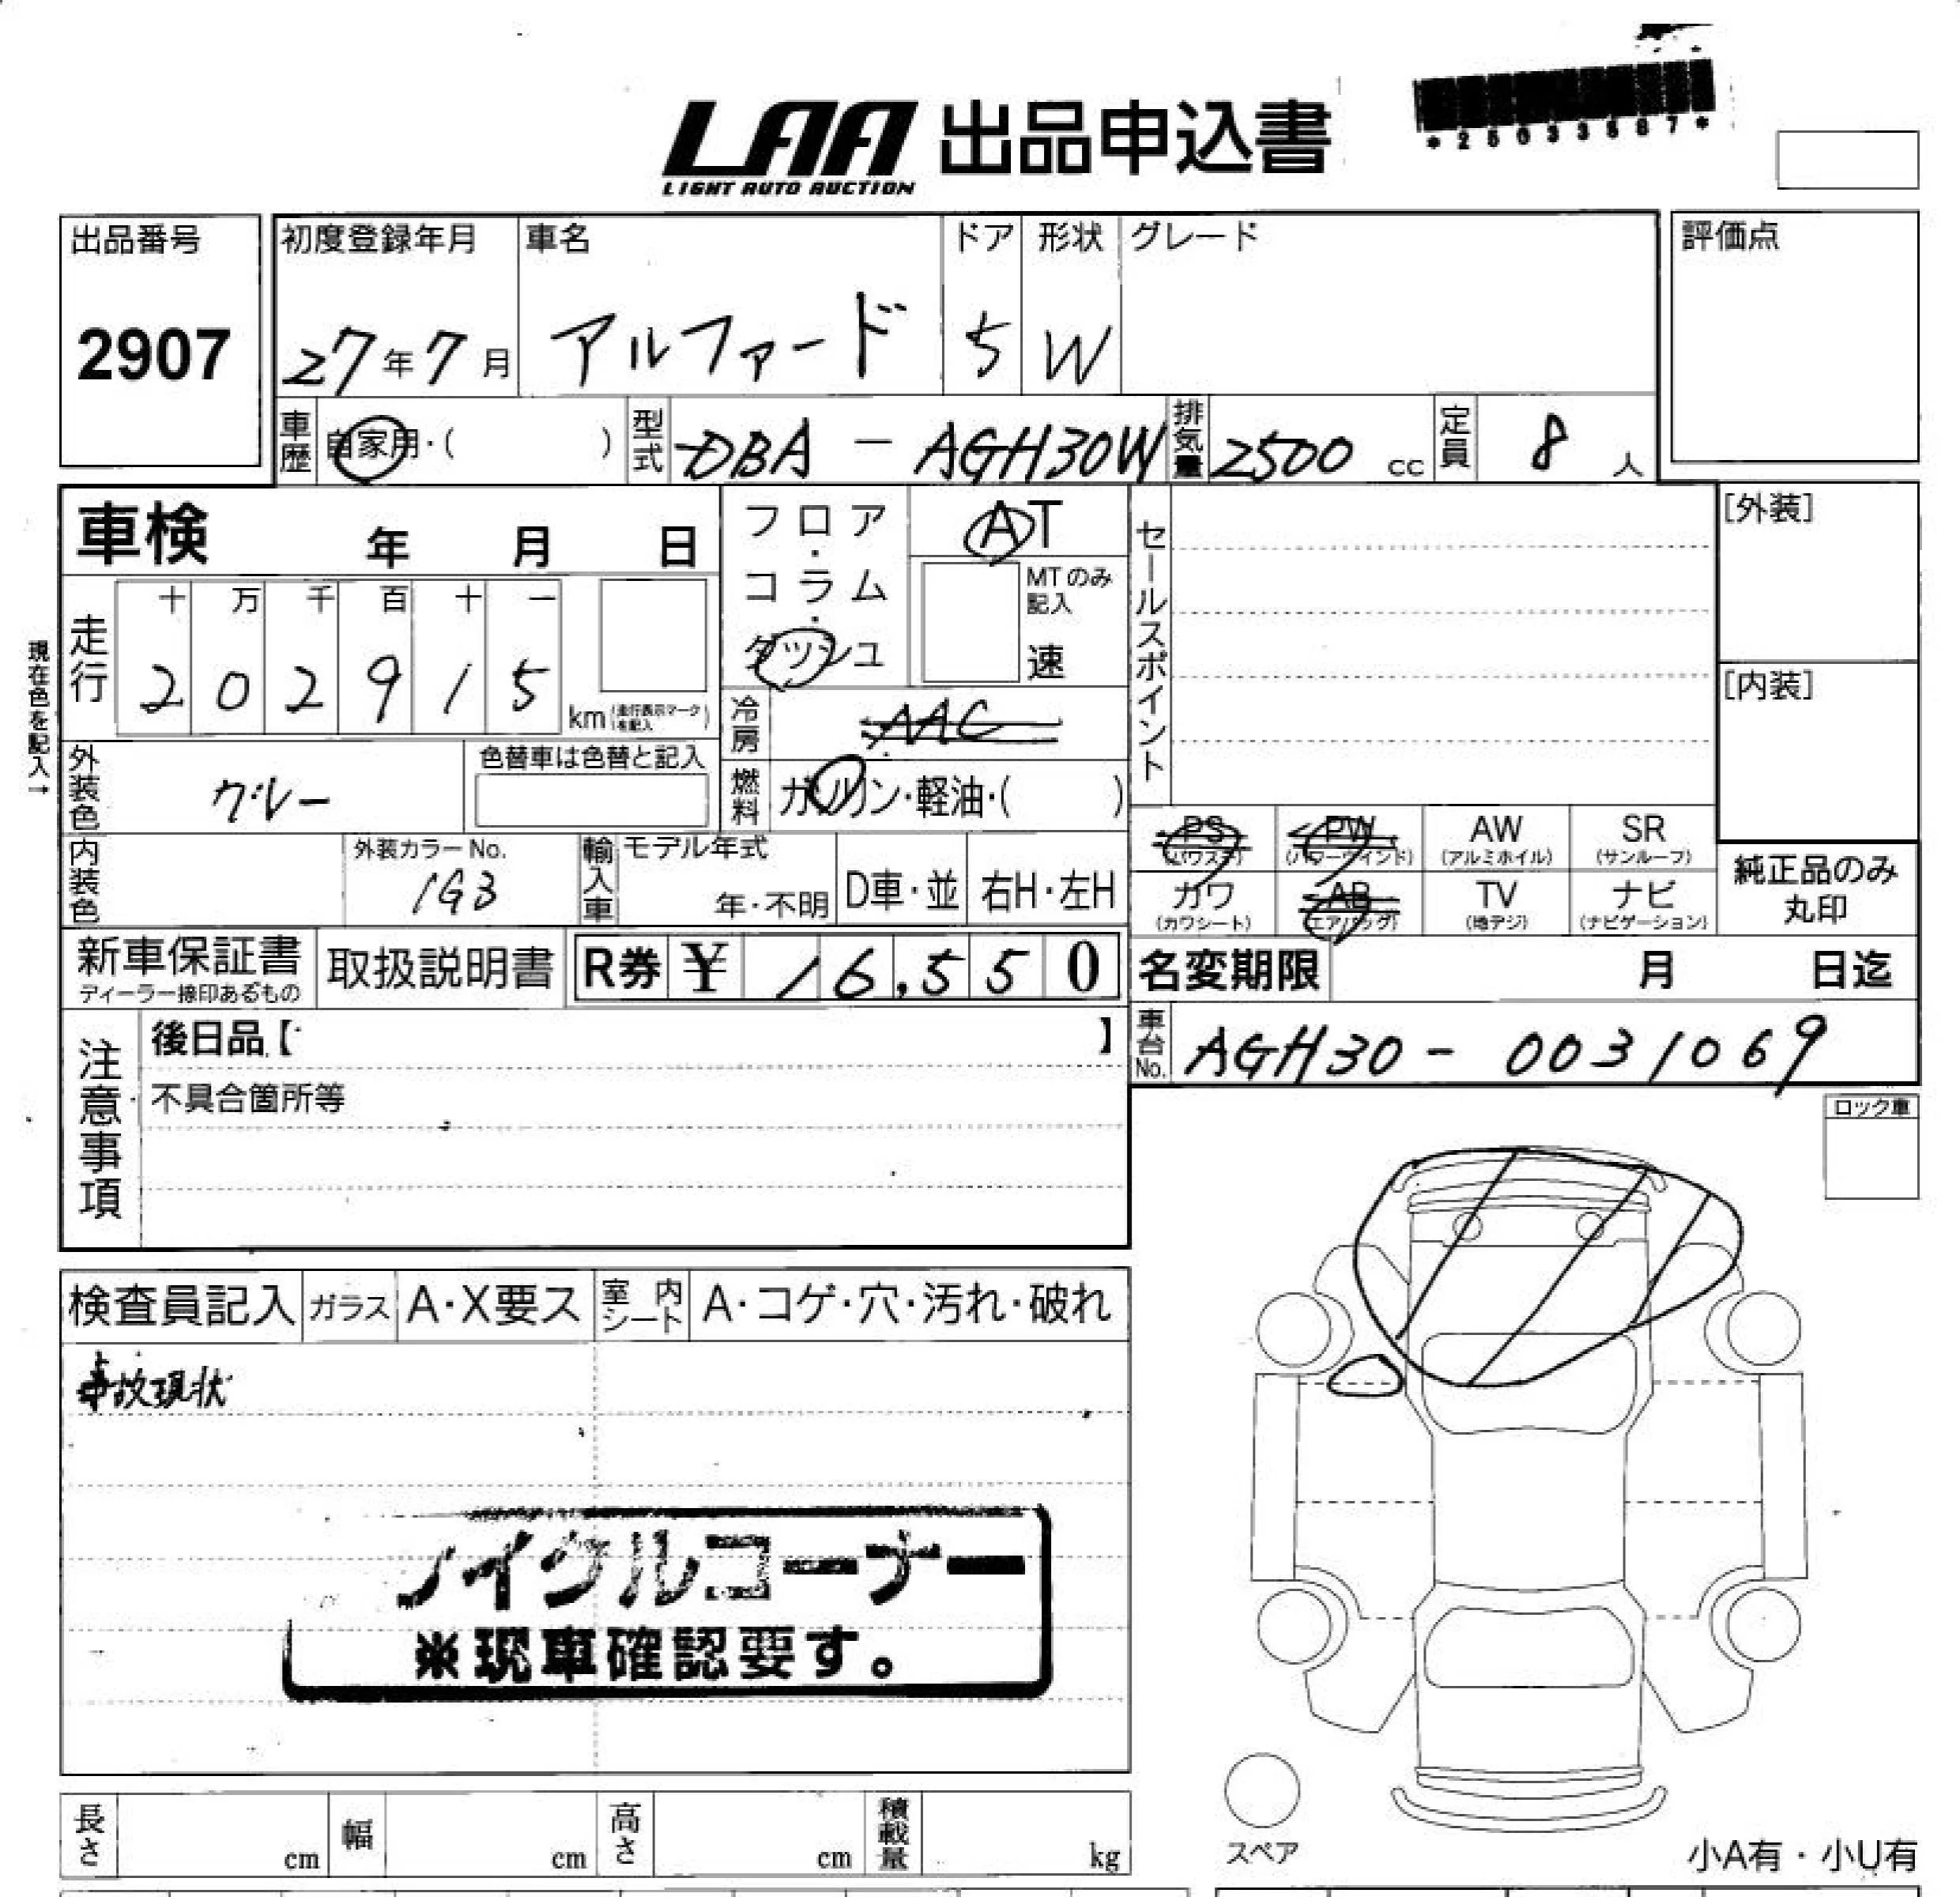 LAA 出品申込書
LIGHT AUTO AUCTION
*25033567*
出品番号 2907
初度登録年月 27年7月
車名 アルファード
ドア 5
形状 W
グレード
評価点
車歴 自家用・( )
型式 DBA - AGH30W
排気量 2500 cc
定員 8 人
車検 年 月 日
フロア・コラム・ダッシュ
AT
MTのみ記入
速
セールスポイント
[外装]
[内装]
現在色を記入→
走行
十 万 千 百 十 一
2 0 2 9 1 5 km(走行表示マークを記入)
冷房 AAC
外装色 グレー
色替車は色替と記入
燃料 ガソリン・軽油・( )
内装色
外装カラーNo. 1G3
輸入車 モデル年式 年・不明 D車・並 右H・左H
PS (パワステ)
PW (パワーウィンド)
AW (アルミホイル)
SR (サンルーフ)
カワ (カワシート)
AB (エアバッグ)
TV (地デジ)
ナビ (ナビゲーション)
純正品のみ丸印
新車保証書 ディーラー捺印あるもの
取扱説明書
R券 ¥ 16,550
名変期限 月 日迄
車台No. AGH30 - 0031069
注意事項
後日品【 】
不具合箇所等
ロック車
検査員記入 ガラス A・X要ス 室内シート A・コゲ・穴・汚れ・破れ
事故現状
イクルコーナー
※現車確認要す。
スペア
小A有・小U有
長さ cm 幅 cm 高さ cm 積載量 kg